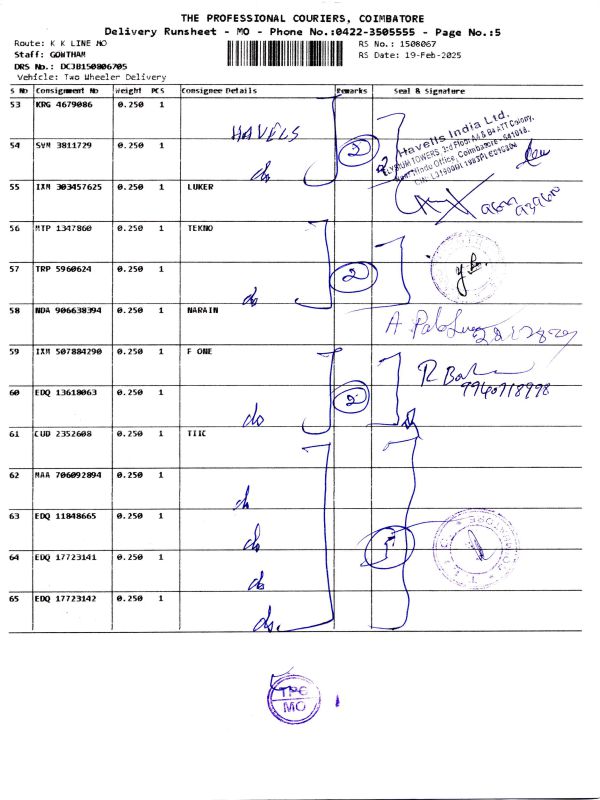 THE PROFESSIONAL COURIERS, COIMBATORE
Delivery Runsheet - MO - Phone No.:0422-3505555 - Page No.:5
Route: K K LINE MO
RS No.: 1508067
Staff: GOWTHAM
RS Date: 19-Feb-2025
DRS No.: DCJB150806705
Vehicle: Two Wheeler Delivery
S No Consignment No Weight PCS Consignee Details Remarks Seal & Signature
53 KRG 4679086 0.250 1
HAVELS
54 SVM 3811729 0.250 1 do 2
Havells India Ltd.
55 IXM 303457625 0.250 1 LUKER
56 MTP 1347860 0.250 1 TEKNO
57 TRP 5960624 0.250 1 do 2
58 NDA 906638394 0.250 1 NARAIN
59 IXM 507884290 0.250 1 F ONE
60 EDQ 13618063 0.250 1 do 2
9940718998
61 CUD 2352608 0.250 1 TIIC
62 MAA 706092894 0.250 1 do
63 EDQ 11848665 0.250 1 do 5
64 EDQ 17723141 0.250 1 do
65 EDQ 17723142 0.250 1 do.
TPC
MO